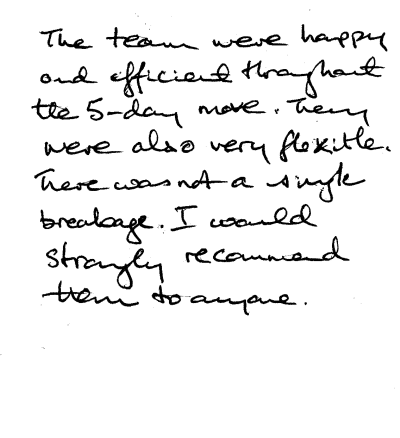 The team were happy
and efficient throughout
the 5-day move. They
were also very flexible.
There was not a single
breakage. I would
strongly recommend
them to anyone.